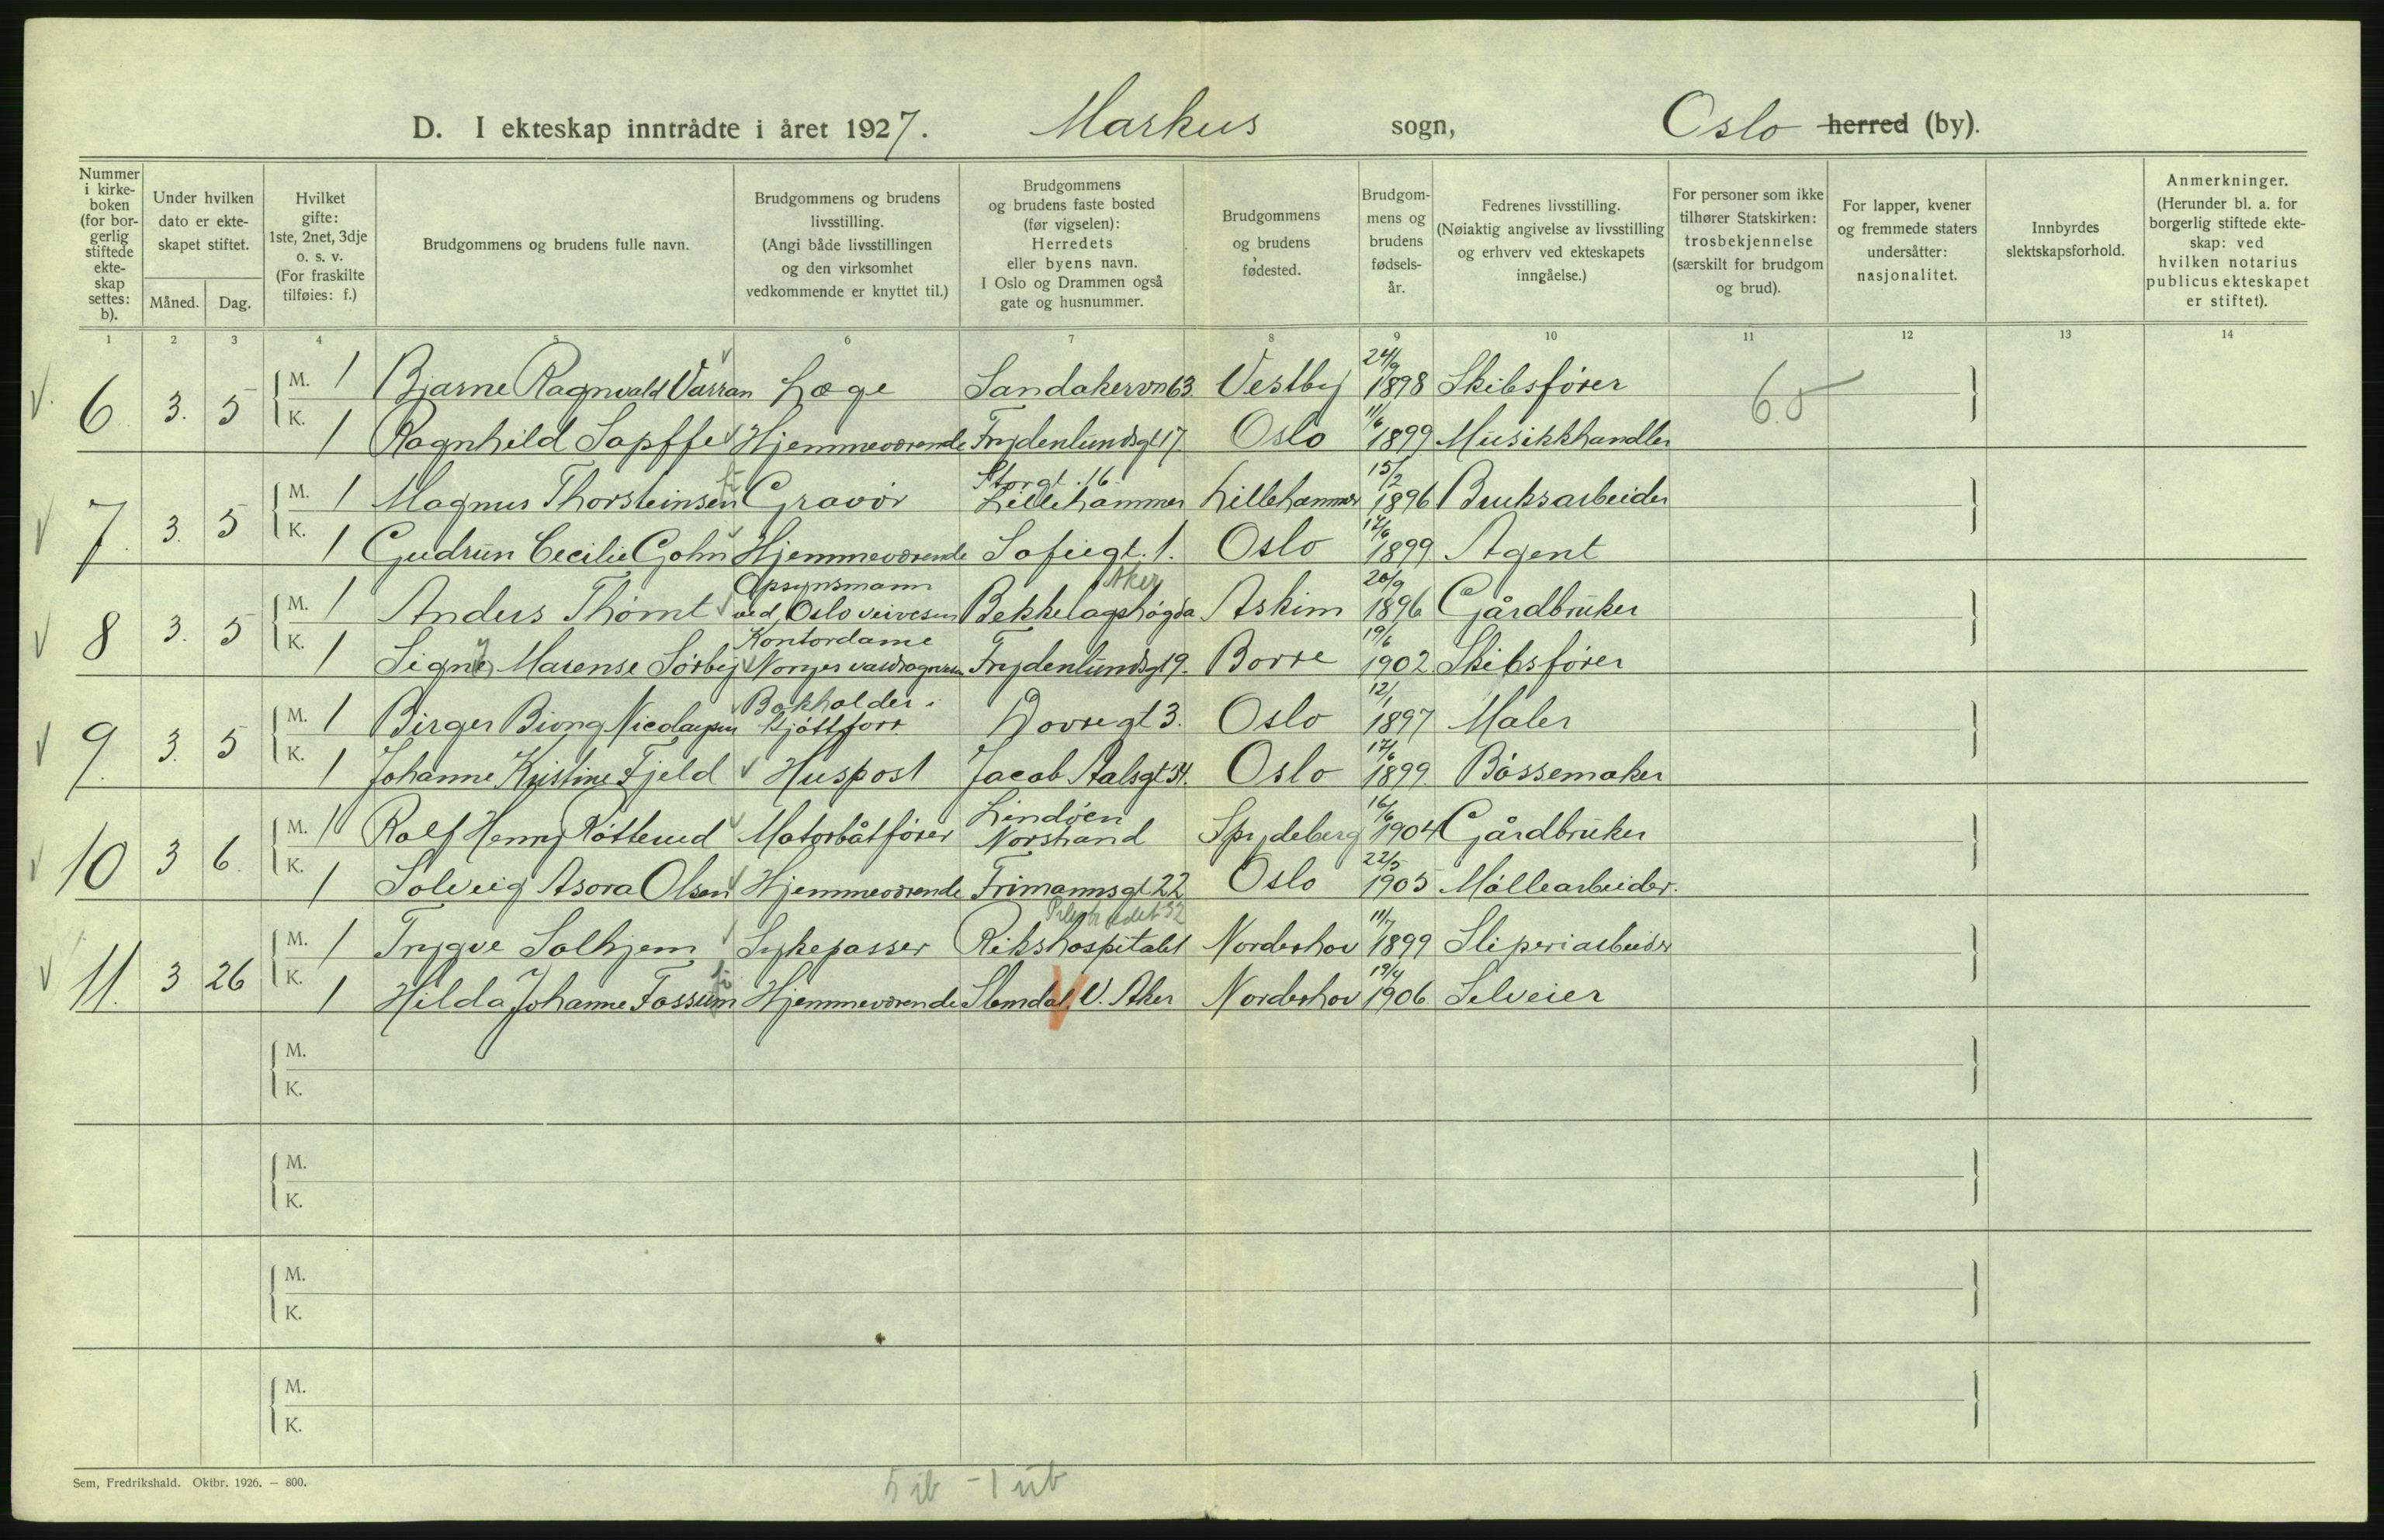 D. I ekteskap inntrådte i året 1927. Markus sogn, Oslo herred (by).
Nummer i kirkeboken (for borgerlig stiftede ekteskap settes: b).
Under hvilken dato er ekteskapet stiftet.
Måned. Dag.
Hvilket gifte: 1ste, 2net, 3dje o. s. v. (For fraskilte tilføies: f.)
Brudgommens og brudens fulle navn.
Brudgommens og brudens livsstilling. (Angi både livsstillingen og den virksomhet vedkommende er knyttet til.)
Brudgommens og brudens faste bosted (før vigselen): Herredets eller byens navn. I Oslo og Drammen også gate og husnummer.
Brudgommens og brudens fødested.
Brudgommens og brudens fødselsår.
Fedrenes livsstilling. (Nøiaktig angivelse av livsstilling og erhverv ved ekteskapets inngåelse.)
For personer som ikke tilhører Statskirken: trosbekjennelse (særskilt for brudgom og brud).
For lapper, kvener og fremmede staters undersåtter: nasjonalitet.
Innbyrdes slektskapsforhold.
Anmerkninger. (Herunder bl. a. for borgerlig stiftede ekteskap: ved hvilken notarius publicus ekteskapet er stiftet).
1 2 3 4 5 6 7 8 9 10 11 12 13 14
6 3. 5 M. 1 Bjarne Ragnvald Varran Læge Sandakervn 63. Vestby 24/9 1898 Skibsfører
K. 1 Ragnhild Sapffe Hjemmeværende Frydenlundsgt 17. Oslo 11/6 1899 Musikkhandler
7. 3. 5 M. 1 Magnus Thorsteinsen Gravör Storgt. 16 Lillehammer Lillehammer 15/2 1896 Bruksarbeider
K. 1 Gudrun Cecilie Gohn Hjemmeværende Sofiegt. 1. Oslo 1899 Agent
8 3. 5 M. 1 Anders Thömt Opsynsmann ved Oslo veivesen Bekkelagshøgda Aker Askim 20/9 1896 Gårdbruker
K. 1 Signe Marense Sörby Kontordame Norges vassdragsvesen Frydenlundsgt 9. Borre 19/6 1902 Skibsfører
9. 3. 5 M. 1 Birger Biong Nicolaysen Bokholder i kjøttforr. Dovregt 3. Oslo 12/1 1897 Maler
K. 1 Johanne Kristine Fjeld Huspost Jacob Aalsgt 54. Oslo 17/6 1899. Bössemaker
10 3 6. M. 1 Rolf Henry Rötterud Motorbåtfører Lindøen Norstrand Spydeberg 16/6 1904 Gårdbruker
K. 1 Solveig Asora Olsen Hjemmeværende Frimannsgt 22 Oslo 22/5 1905 Möllearbeider.
11. 3 26 M. 1 Trygve Solhjem Sykepasser Rikshospitalet Pilestredet 32 Norderhov 11/7 1899 Sliperiarbeider
K. 1 Hilda Johanne Fossum Hjemmeværende Slemdal, V. Aker Norderhov 19/4 1906 Selveier
M.
K.
M.
K.
M.
K.
M.
K.
Sem, Fredrikshald. Oktbr. 1926. — 800.
5 ib - 1 ub